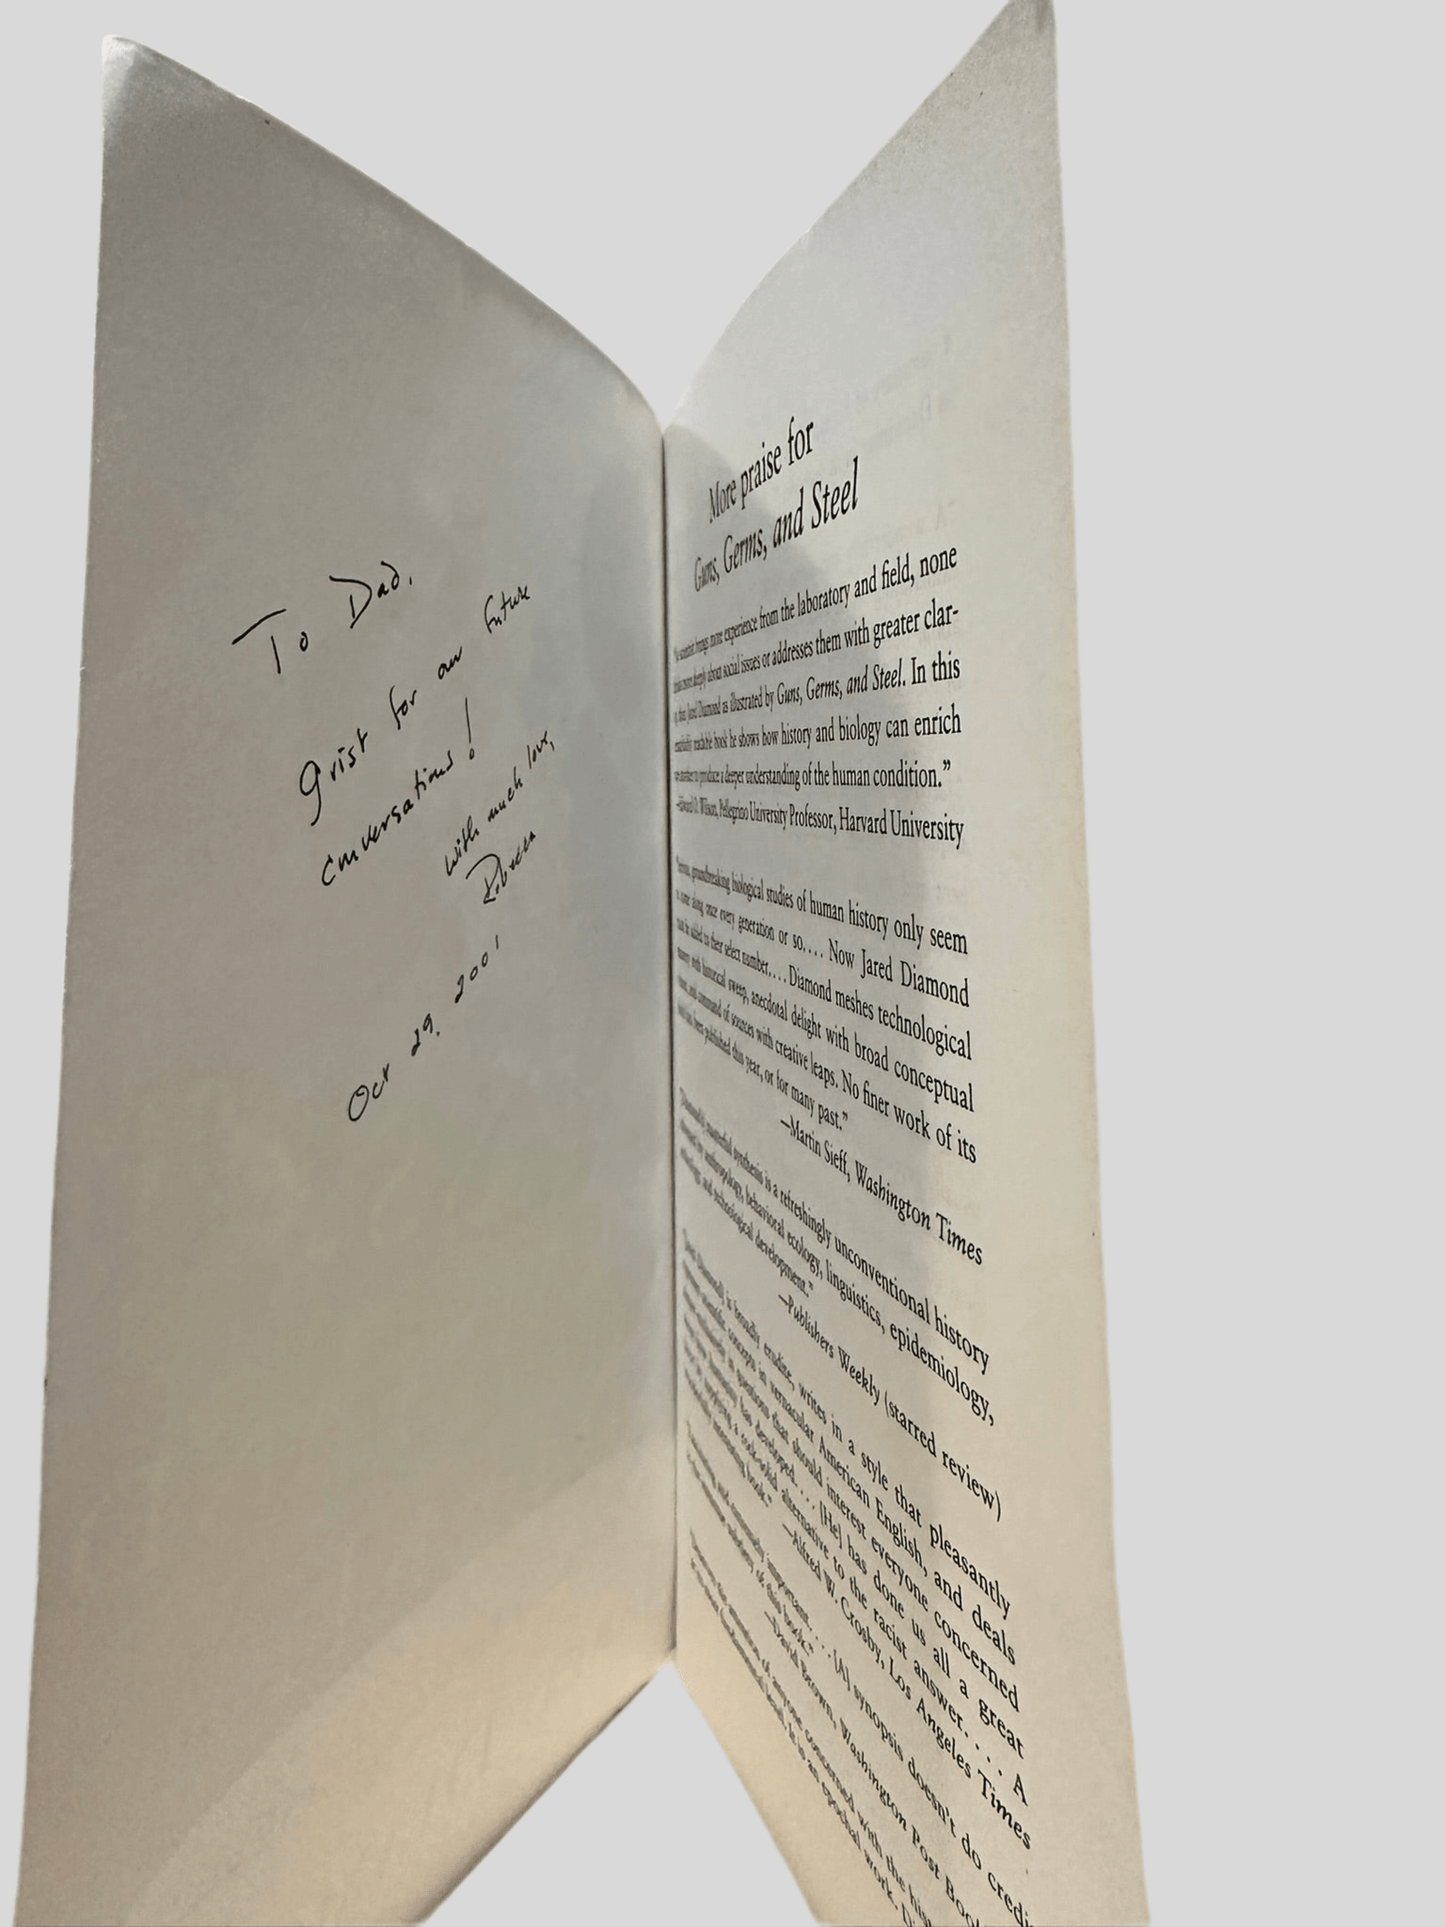 To Dad,
Grist for our future
conversations!
With much love,
Rebecca
Oct 29, 2001
More praise for
Guns, Germs, and Steel
brings more experience from the laboratory and field, none
more deeply about social issues or addresses them with greater clar-
than Jared Diamond as illustrated by Guns, Germs, and Steel. In this
readable book he shows how history and biology can enrich
to produce a deeper understanding of the human condition.”
—Edward O. Wilson, Pellegrino University Professor, Harvard University
groundbreaking biological studies of human history only seem
to come along once every generation or so.... Now Jared Diamond
must be added to their select number.... Diamond meshes technological
mastery with historical sweep, anecdotal delight with broad conceptual
vision, and command of sources with creative leaps. No finer work of its
kind has been published this year, or for many past.”
—Martin Sieff, Washington Times
masterful synthesis is a refreshingly unconventional history
by anthropology, behavioral ecology, linguistics, epidemiology,
and technological development.”
—Publishers Weekly (starred review)
is broadly erudite, writes in a style that pleasantly
scientific concepts in vernacular American English, and deals
questions that should interest everyone concerned
has developed.... [He] has done us all a great
a rock-solid alternative to the racist answer.... A
interesting book.”
—Alfred W. Crosby, Los Angeles Times
important.... [A] synopsis doesn't do credi
of this book.”
—David Brown, Washington Post Boo
of anyone concerned with the his
It is an epochal work. Di